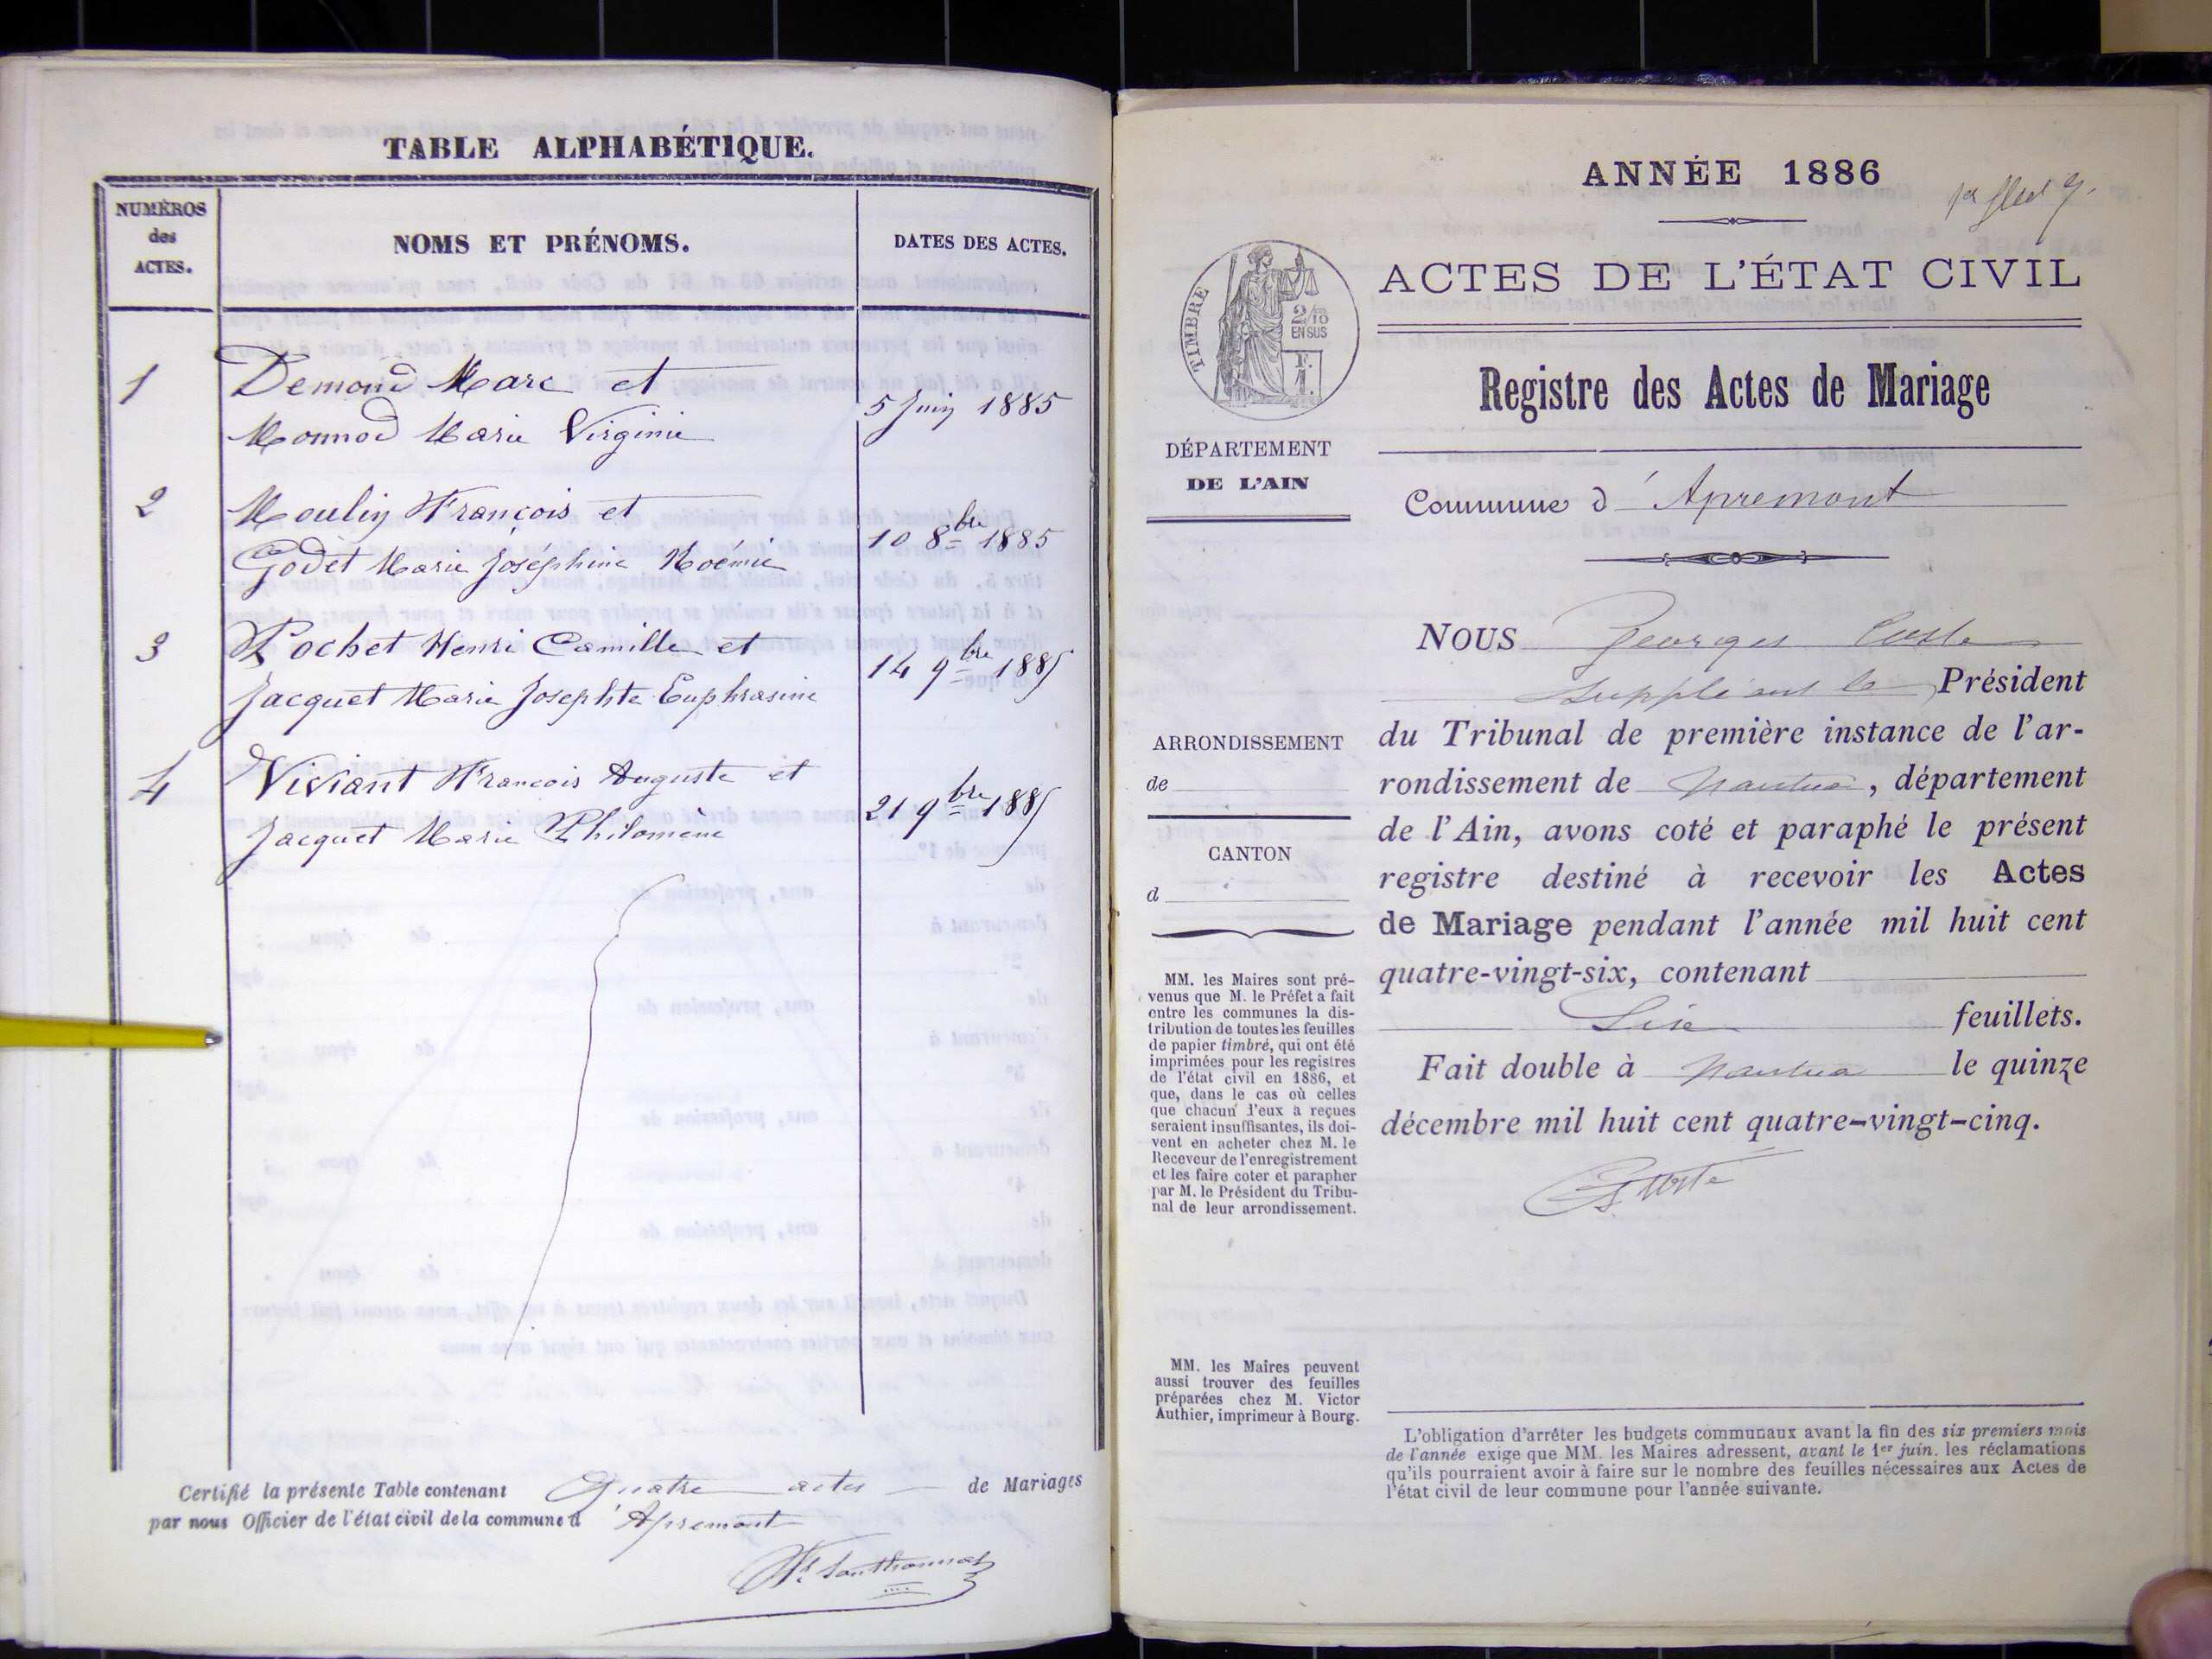 TABLE ALPHABÉTIQUE.
NUMÉROS
des
ACTES.
NOMS ET PRÉNOMS.
DATES DES ACTES.
1
Demond Marc et
Monnod Marie Virginie
5 Juin 1885
2
Moulin François et
Godet Marie Joséphine Noémie
10 8bre 1885
3
Pochet Henri Camille et
Jacquet Marie Josephte Euphrasine
14 9bre 1885
4
Viviant François Auguste et
Jacquet Marie Philomène
21 9bre 1885
Certifié la présente Table contenant Quatre actes de Mariages
par nous Officier de l'état civil de la commune d'Apremont
ANNÉE 1886
ACTES DE L'ÉTAT CIVIL
TIMBRE
2/10
EN SUS
F.
1.
Registre des Actes de Mariage
DÉPARTEMENT
DE L'AIN
Commune d'Apremont
NOUS Georges
Suppléant le Président
du Tribunal de première instance de l'ar-
rondissement de Nantua, département
de l'Ain, avons coté et paraphé le présent
registre destiné à recevoir les Actes
de Mariage pendant l'année mil huit cent
quatre-vingt-six, contenant
Six feuillets.
Fait double à Nantua le quinze
décembre mil huit cent quatre-vingt-cinq.
ARRONDISSEMENT
de
CANTON
d
MM. les Maires sont pré-
venus que M. le Préfet a fait
entre les communes la dis-
tribution de toutes les feuilles
de papier timbré, qui ont été
imprimées pour les registres
de l'état civil en 1886, et
que, dans le cas où celles
que chacun d'eux a reçues
seraient insuffisantes, ils doi-
vent en acheter chez M. le
Receveur de l'enregistrement
et les faire coter et parapher
par M. le Président du Tribu-
nal de leur arrondissement.
MM. les Maires peuvent
aussi trouver des feuilles
préparées chez M. Victor
Authier, imprimeur à Bourg.
L'obligation d'arrêter les budgets communaux avant la fin des six premiers mois
de l'année exige que MM. les Maires adressent, avant le 1er juin, les réclamations
qu'ils pourraient avoir à faire sur le nombre des feuilles nécessaires aux Actes de
l'état civil de leur commune pour l'année suivante.